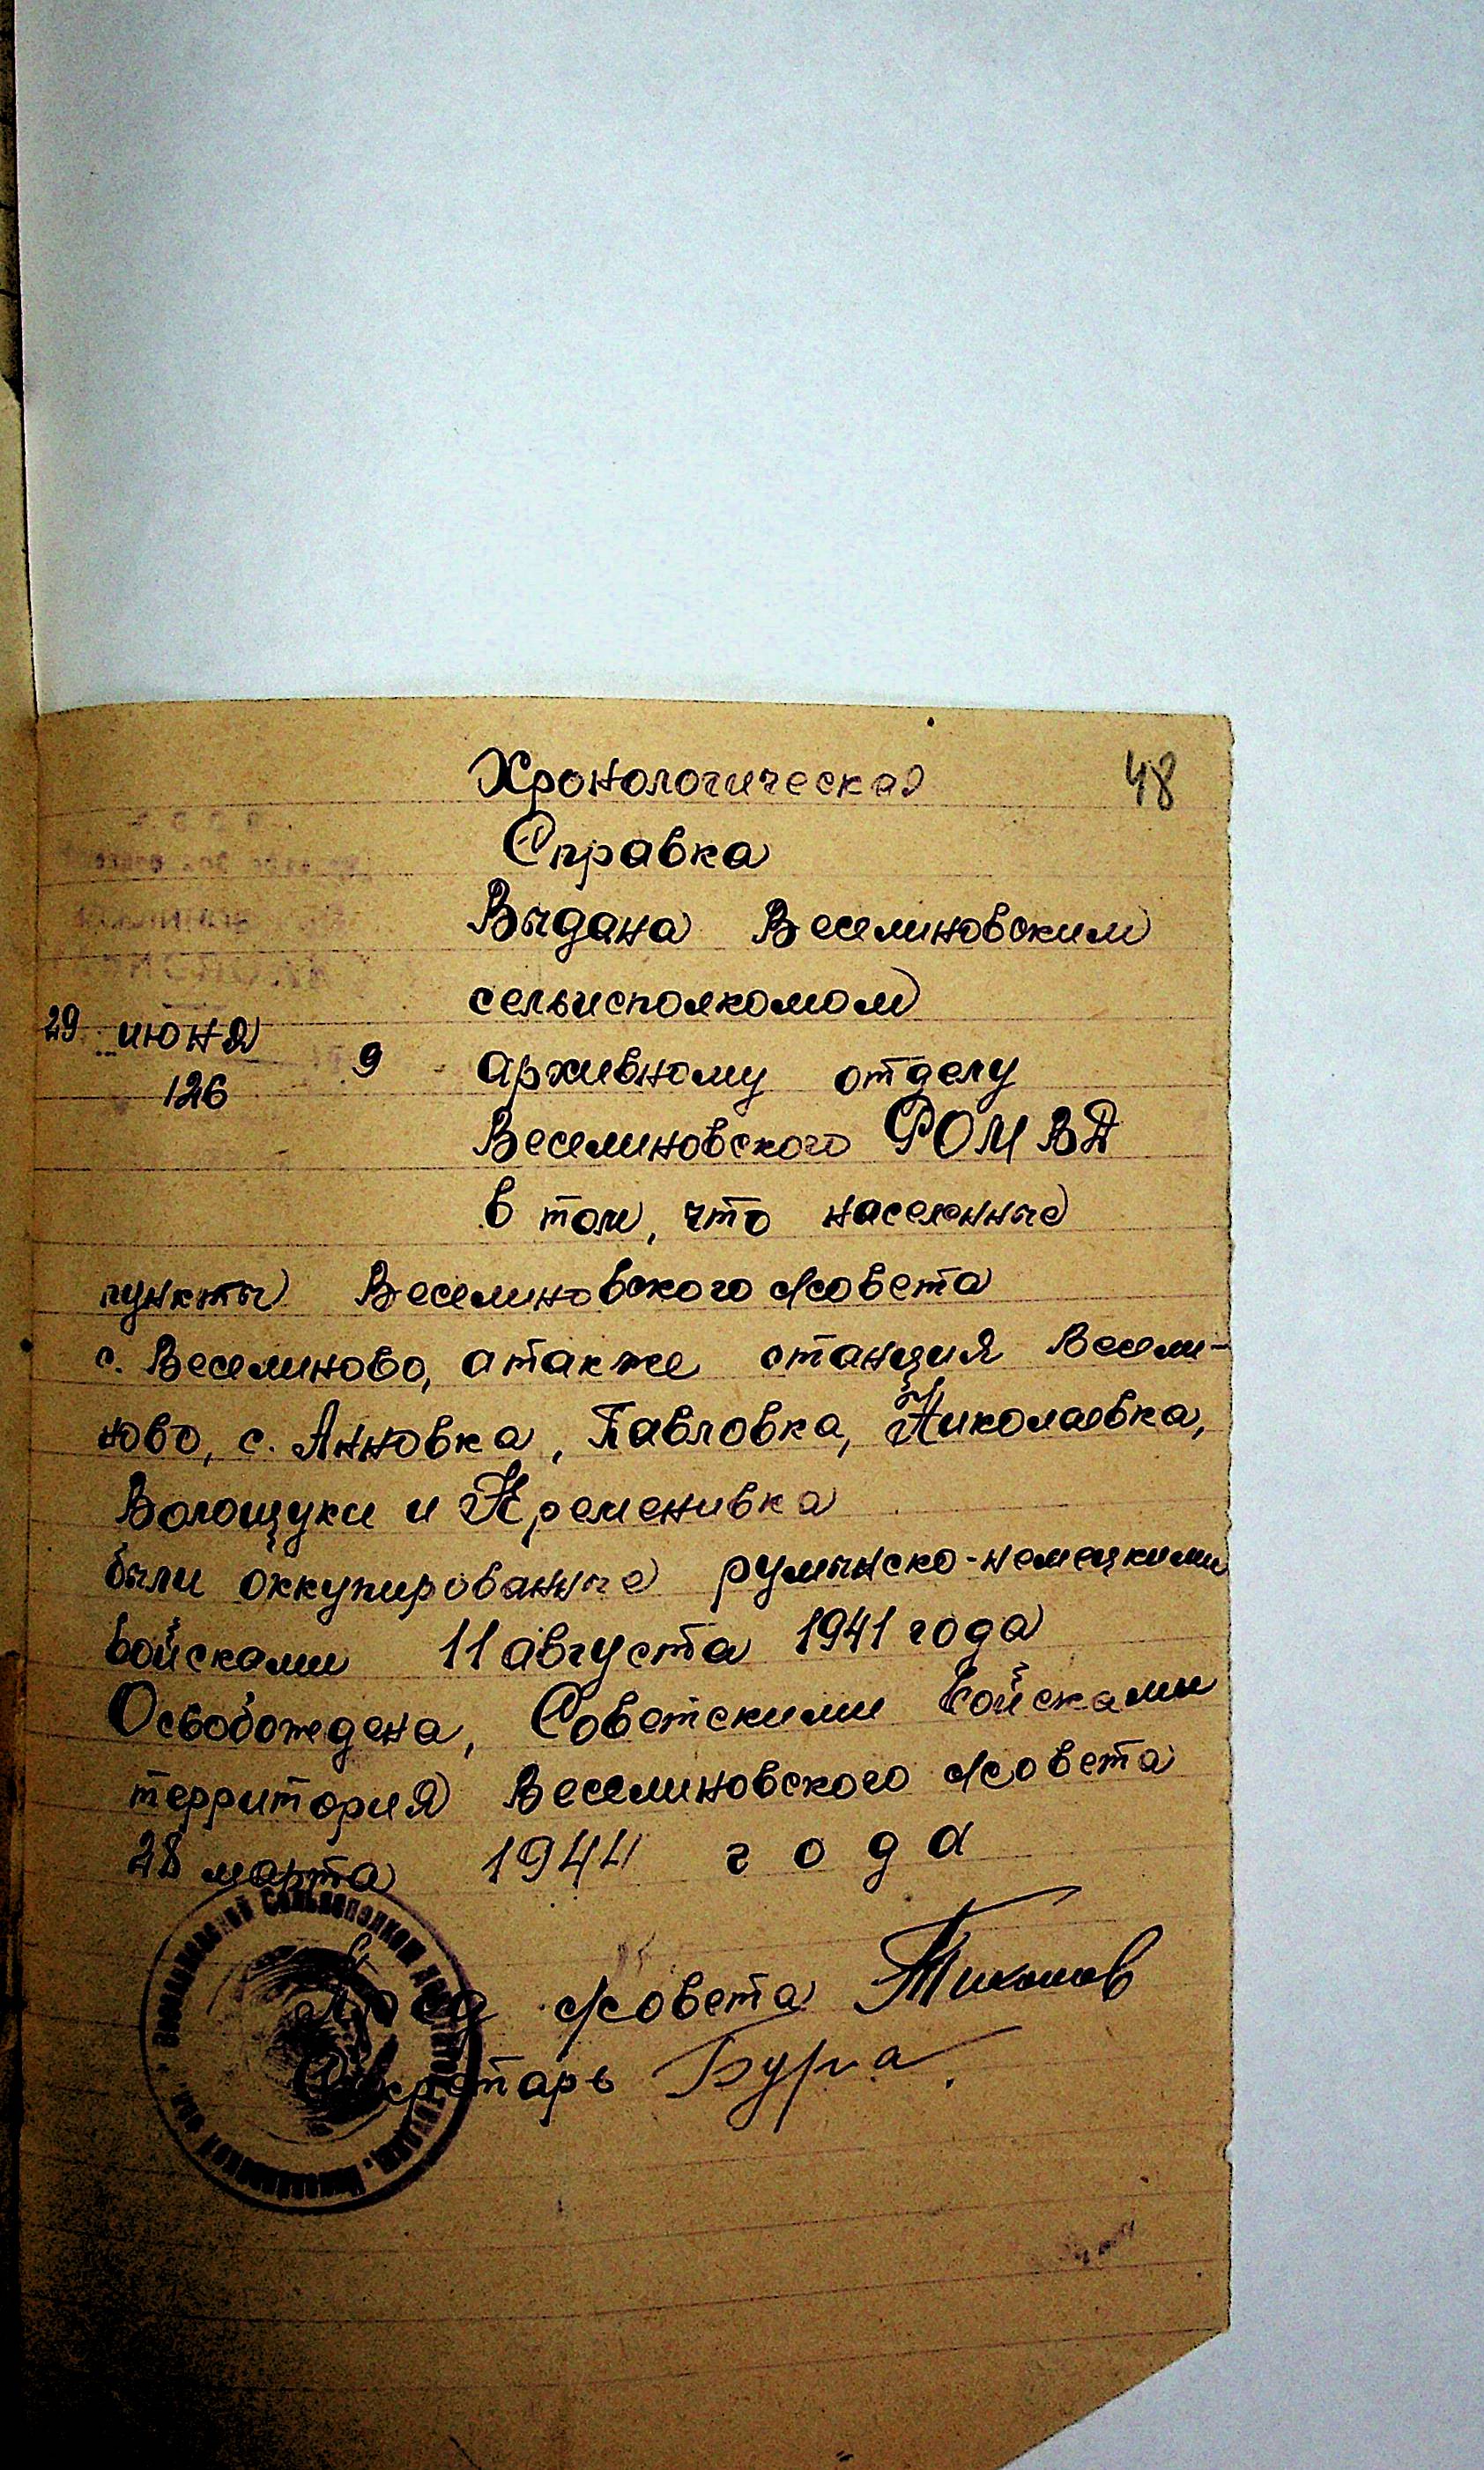 48
Хронологическая
Справка
Выдана Веселиновским
сельисполкомом
29 июня
9 архивному отделу
126
Веселиновского РОМВД
в том, что населенные
пункты Веселиновского с/совета
с. Веселиново, атакже станция Весели-
ново, с. Анновка, Павловка, Николаевка,
Волощуки и Кременивка
были оккупированные румынско-немецкими
войсками 11 августа 1941 года
Освобождена, Советскими Войсками
территория Веселиновского с/совета
28 марта 1944 года
Пред с/совета Тихонов
Секретарь Бура